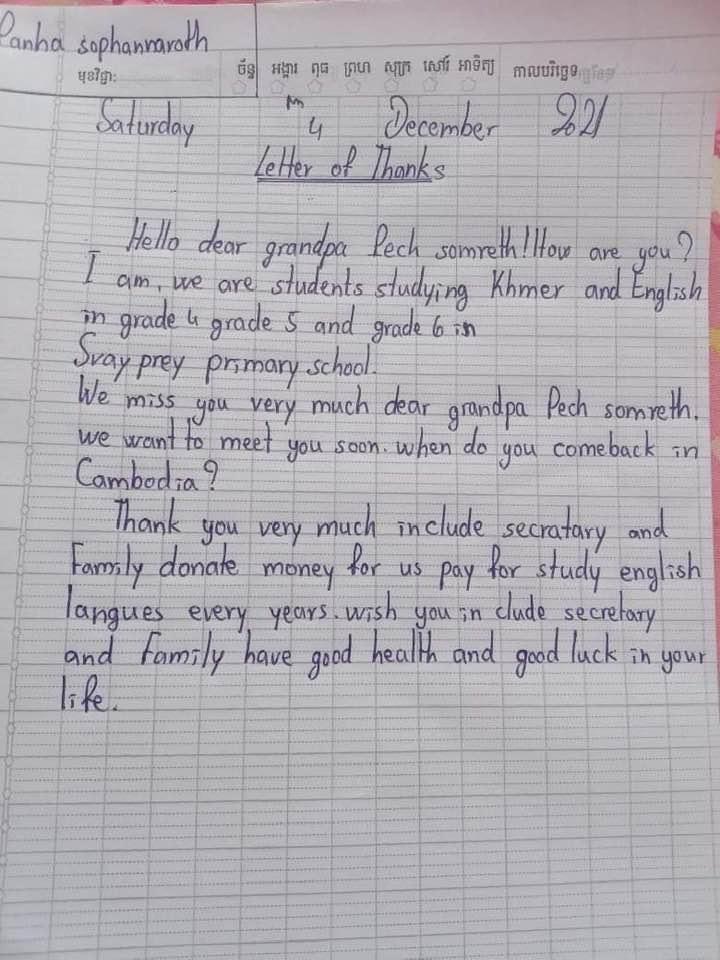 Panha sophannaroth
មុខវិជ្ជា: ច័ន្ទ អង្គារ ពុធ ព្រហ សុក្រ សៅរ៍ អាទិត្យ កាលបរិច្ឆេទ
Saturday 4 December 2021
Letter of Thanks
Hello dear grandpa Pech somreth! How are you?
I am, we are students studying Khmer and English
in grade 4 grade 5 and grade 6 in
Svay prey primary school.
We miss you very much dear grandpa Pech somreth.
we want to meet you soon. when do you comeback in
Cambodia?
Thank you very much include secratary and
Family donate money for us pay for study english
langues every years. wish you in clude secretary
and family have good health and good luck in your
life.